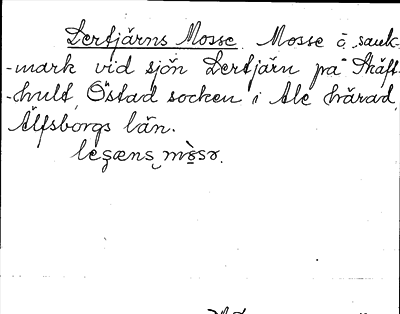 Lertjärns Mosse. Mosse å sank-
-mark vid sjön Lertjärn på Skäft-
-hult, Östad socken i Ale härad,
Älfsborgs län.